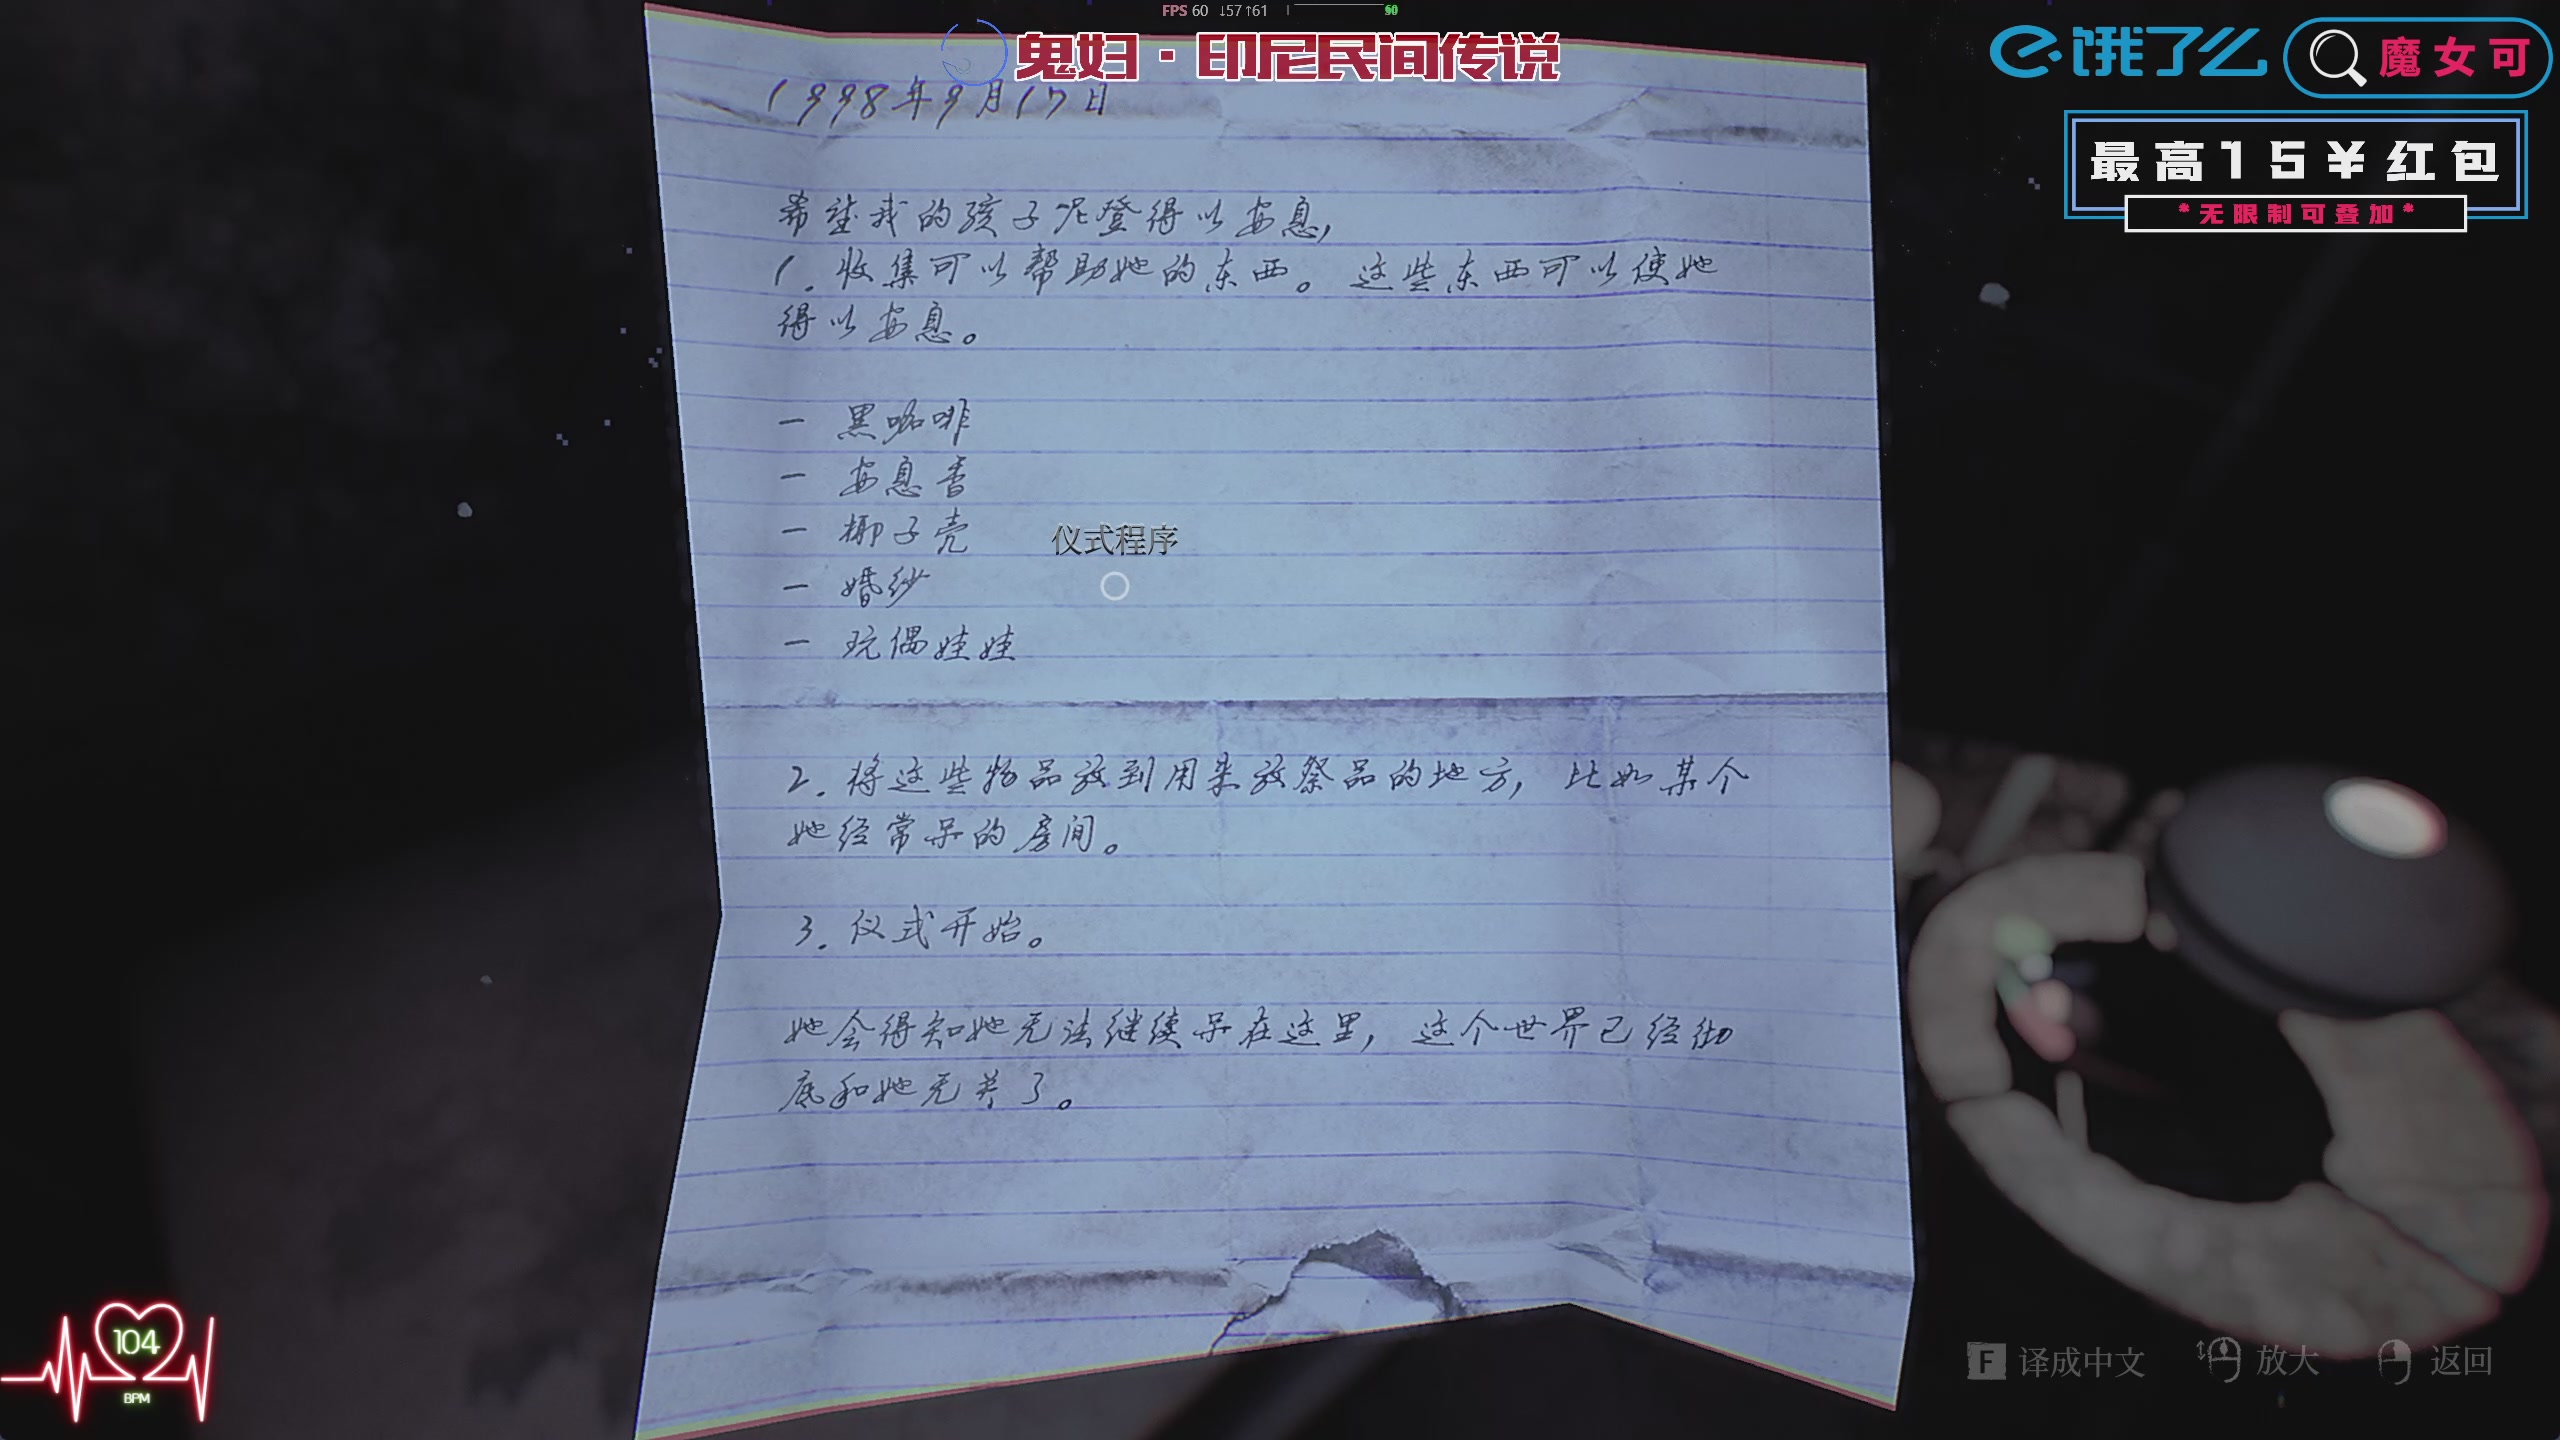 FPS 60 ↓57↑61 60
鬼妇·印尼民间传说
饿了么
魔女可
最高15¥红包
*无限制可叠加*
1998年9月17日
希望我的孩子妮登得以安息,
1. 收集可以帮助她的东西。这些东西可以使她
得以安息。
— 黑咖啡
— 安息香
— 椰子壳
仪式程序
— 婚纱
— 玩偶娃娃
2. 将这些物品放到用来放祭品的地方, 比如某个
她经常呆的房间。
3. 仪式开始。
她会得知她无法继续呆在这里, 这个世界已经彻
底和她无关了。
104
BPM
F 译成中文
放大
返回